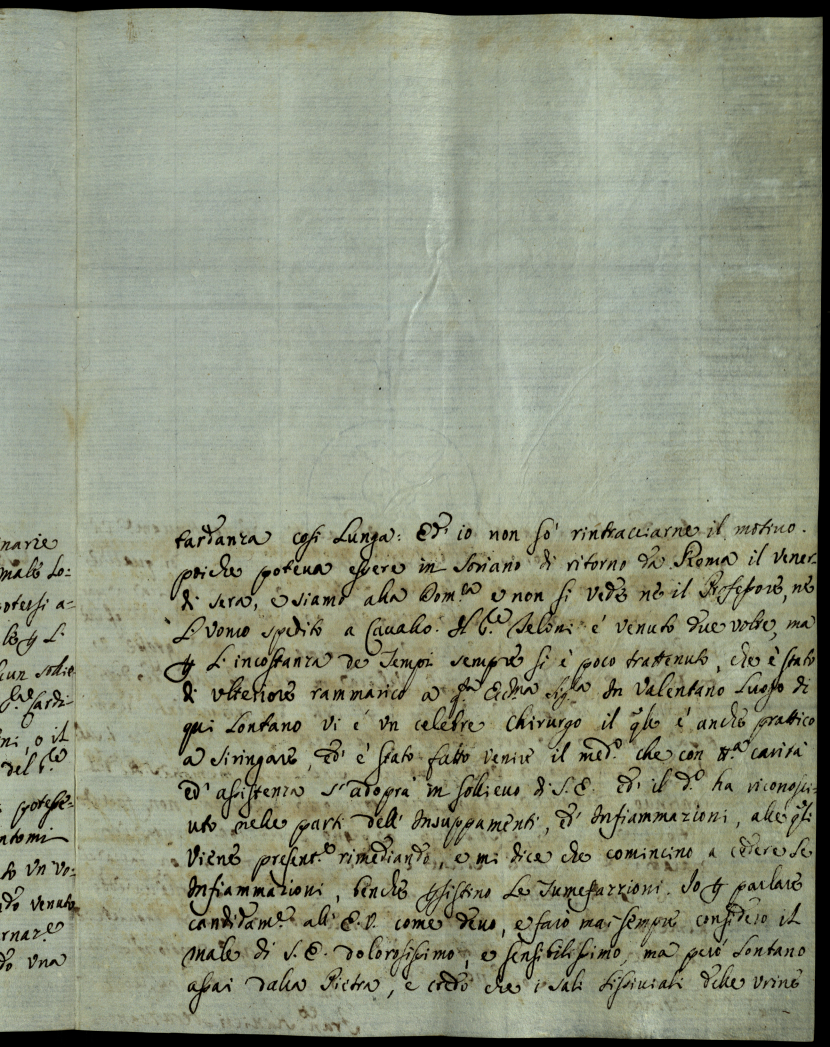 narie
male Lo:
potersi a=
le p L'
cun sollie
Cardi=
ni, o il
del
potesse=
ntomi
to Vn Vo=
do venuto
ornare
do Vna
tardanza così Lunga: Ed' io non sò rintracciarne il motivo.
poiche poteva essere in Soriano di ritorno dà Roma il Vener=
di sera, e siamo alla Dom.ca e non si vede ne il Professore, ne
L'Vomo spedito a Cavallo. Il Belòni è venuto due volte, ma
p L'incostanza de Tempi sempre si è poco trattenuto, che è stato
di vlteriore rammarico a q.sta Ecc.ma Sig.ra In Valentano Luogo di
qui Lontano Vi è Vn celebre Chirurgo il q.le è anche prattico
a Siringare, ed' è stato fatto venire il med.o che con carità
ed' assistenza s'adopra in sollievo di S. E. ed' il d.o ha riconosci=
uto nelle parti dell' Insuppamenti, ed' Infiammazioni, alle q.li
Viene present.e rimediando, e mi dice che comincino a cedere Le
Infiammazioni, benche psistino Le Tumefazzioni. Io p parlare
candidam.e all' E. V. come devo, e farò mai sempre considero il
male di S. E. dolorosissimo, e sensibilissimo, ma però Lontano
assai dalla Pietra, e credo che i Sali Lissiviali delle Vrine